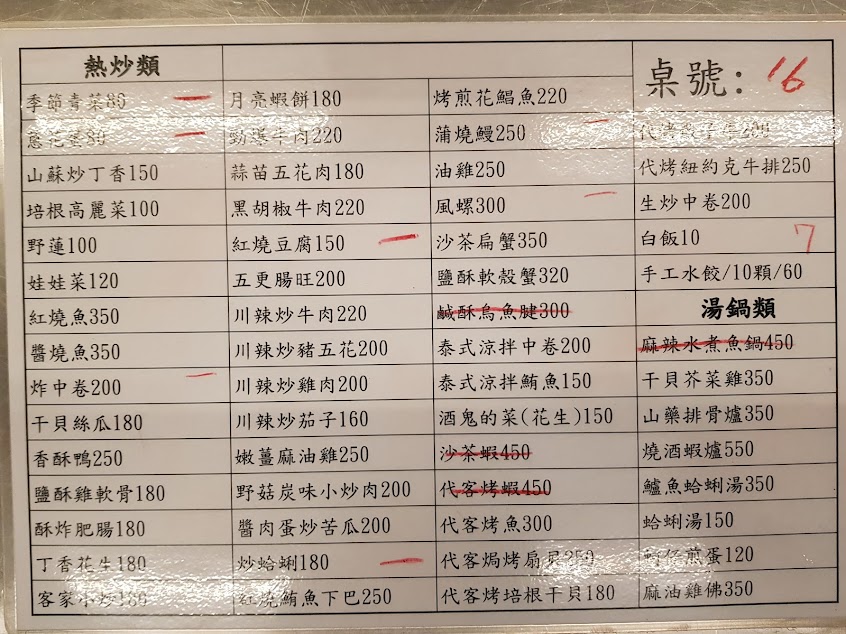 熱炒類
季節青菜80 一
蔥花蛋80 一
山蘇炒丁香150
培根高麗菜100
野蓮100
娃娃菜120
紅燒魚350
醬燒魚350
炸中卷200 一
干貝絲瓜180
香酥鴨250
鹽酥雞軟骨180
酥炸肥腸180
丁香花生180
客家小炒180
月亮蝦餅180
勁爆牛肉220
蒜苗五花肉180
黑胡椒牛肉220
紅燒豆腐150 一
五更腸旺200
川辣炒牛肉220
川辣炒豬五花200
川辣炒雞肉200
川辣炒茄子160
嫩薑麻油雞250
野菇炭味小炒肉200
醬肉蛋炒苦瓜200
炒蛤蜊180 一
紅燒鮪魚下巴250
烤煎花鯧魚220
蒲燒鰻250 一
油雞250
風螺300 一
沙茶扁蟹350
鹽酥軟殼蟹320
鹹酥烏魚腱300
泰式涼拌中卷200
泰式涼拌鮪魚150
酒鬼的菜(花生)150
沙茶蝦450
代客烤蝦450
代客烤魚300
代客焗烤扇貝250
代客烤培根干貝180
桌號: 16
代烤
200
代烤紐約克牛排250
生炒中卷200
白飯10 7
手工水餃/10顆/60
湯鍋類
麻辣水煮魚鍋450
干貝芥菜雞350
山藥排骨爐350
燒酒蝦爐550
鱸魚蛤蜊湯350
蛤蜊湯150
蚵仔煎蛋120
麻油雞佛350